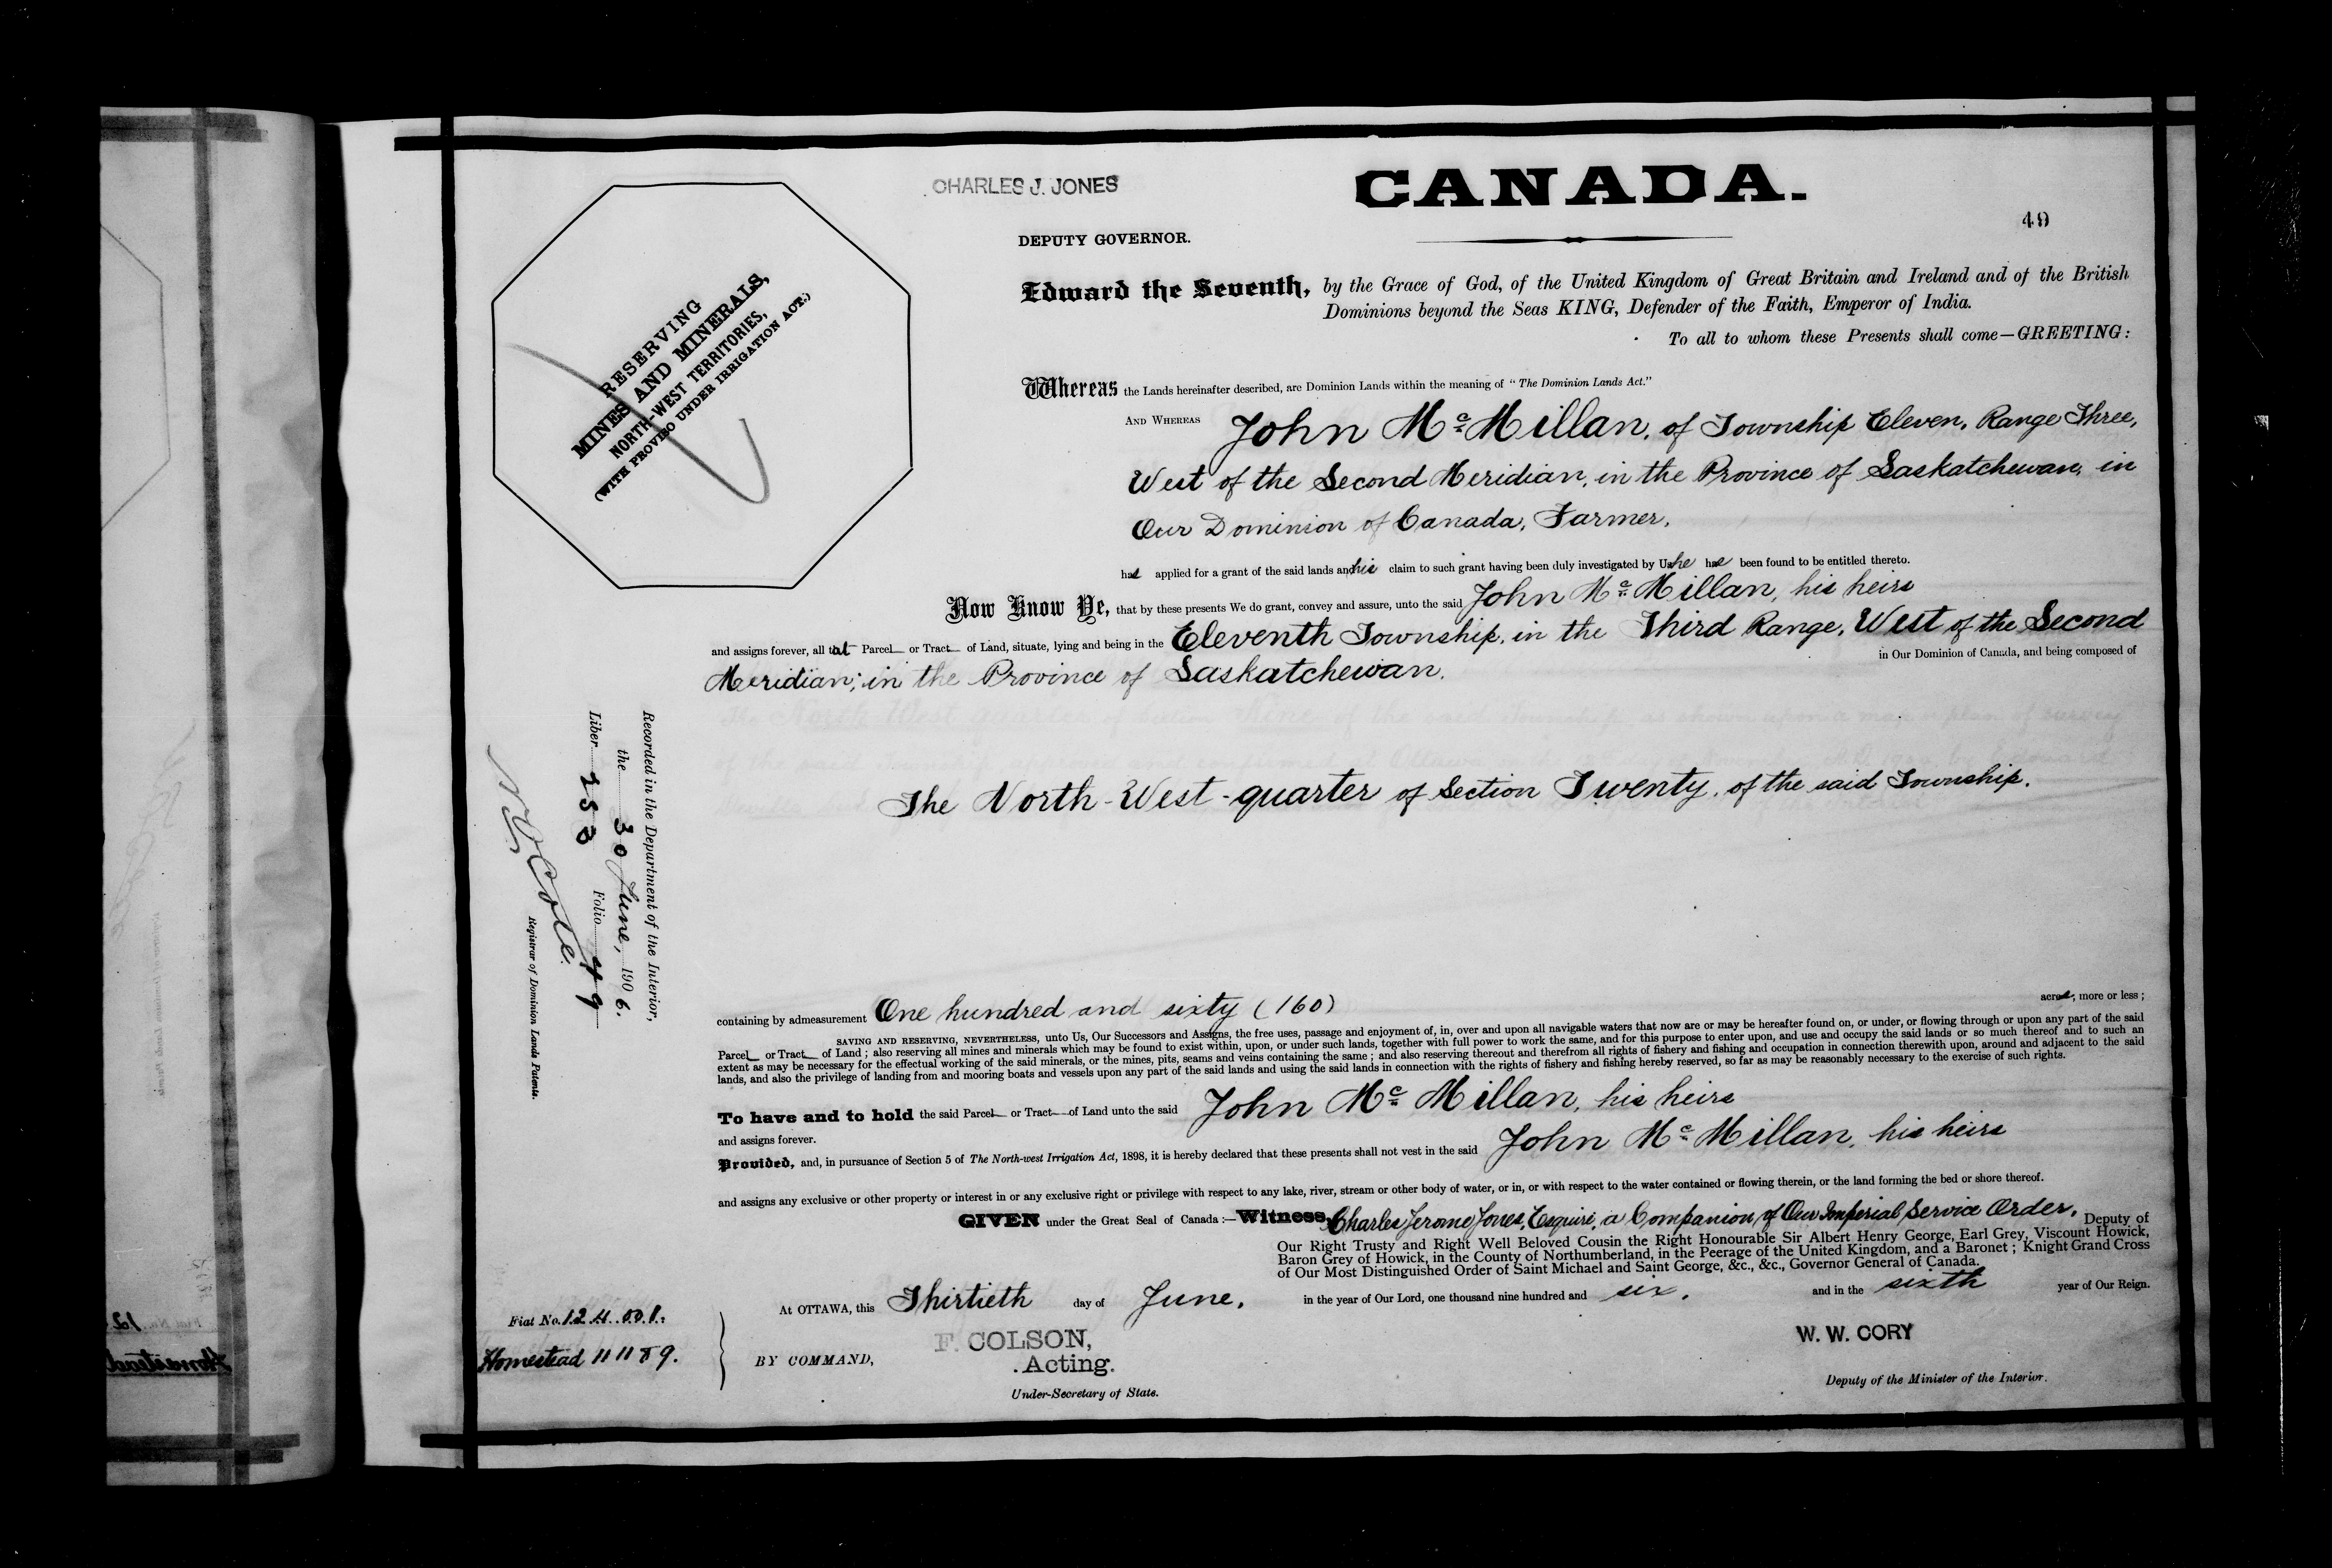 CHARLES J. JONES
CANADA.
49
DEPUTY GOVERNOR.
RESERVING
MINES AND MINERALS,
NORTH-WEST TERRITORIES,
(WITH PROVISO UNDER IRRIGATION ACT.)
Edward the Seventh, by the Grace of God, of the United Kingdom of Great Britain and Ireland and of the British
Dominions beyond the Seas KING, Defender of the Faith, Emperor of India.
To all to whom these Presents shall come—GREETING:
Whereas the Lands hereinafter described, are Dominion Lands within the meaning of "The Dominion Lands Act."
AND WHEREAS John McMillan, of Township Eleven, Range Three,
West of the Second Meridian, in the Province of Saskatchewan, in
Our Dominion of Canada, Farmer,
has applied for a grant of the said lands and his claim to such grant having been duly investigated by Us he has been found to be entitled thereto.
Now Know Ye, that by these presents We do grant, convey and assure, unto the said John McMillan, his heirs
and assigns forever, all that Parcel or Tract of Land, situate, lying and being in the Eleventh Township, in the Third Range, West of the Second
Meridian; in the Province of Saskatchewan. in Our Dominion of Canada, and being composed of
The North-West-quarter of Section Twenty, of the said Township.
Recorded in the Department of the Interior,
the 30 June, 1906.
Liber 258 Folio 49
Registrar of Dominion Lands Patents.
containing by admeasurement One hundred and sixty (160) acres, more or less;
SAVING AND RESERVING, NEVERTHELESS, unto Us, Our Successors and Assigns, the free uses, passage and enjoyment of, in, over and upon all navigable waters that now are or may be hereafter found on, or under, or flowing through or upon any part of the said
Parcel or Tract of Land; also reserving all mines and minerals which may be found to exist within, upon, or under such lands, together with full power to work the same, and for this purpose to enter upon, and use and occupy the said lands or so much thereof and to such an
extent as may be necessary for the effectual working of the said minerals, or the mines, pits, seams and veins containing the same; and also reserving thereout and therefrom all rights of fishery and fishing and occupation in connection therewith upon, around and adjacent to the said
lands, and also the privilege of landing from and mooring boats and vessels upon any part of the said lands and using the said lands in connection with the rights of fishery and fishing hereby reserved, so far as may be reasonably necessary to the exercise of such rights.
To have and to hold the said Parcel or Tract of Land unto the said John McMillan, his heirs
and assigns forever.
Provided, and, in pursuance of Section 5 of The North-west Irrigation Act, 1898, it is hereby declared that these presents shall not vest in the said John McMillan, his heirs
and assigns any exclusive or other property or interest in or any exclusive right or privilege with respect to any lake, river, stream or other body of water, or in, or with respect to the water contained or flowing therein, or the land forming the bed or shore thereof.
GIVEN under the Great Seal of Canada:—Witness, Charles Jerome Jones, Esquire, a Companion of Our Imperial Service Order, Deputy of
Our Right Trusty and Right Well Beloved Cousin the Right Honourable Sir Albert Henry George, Earl Grey, Viscount Howick,
Baron Grey of Howick, in the County of Northumberland, in the Peerage of the United Kingdom, and a Baronet; Knight Grand Cross
of Our Most Distinguished Order of Saint Michael and Saint George, &c., &c., Governor General of Canada.
At OTTAWA, this Thirtieth day of June, in the year of Our Lord, one thousand nine hundred and six, and in the sixth year of Our Reign.
Fiat No. 124001.
Homestead 11189.
BY COMMAND,
F. COLSON,
Acting.
Under-Secretary of State.
W. W. CORY
Deputy of the Minister of the Interior.